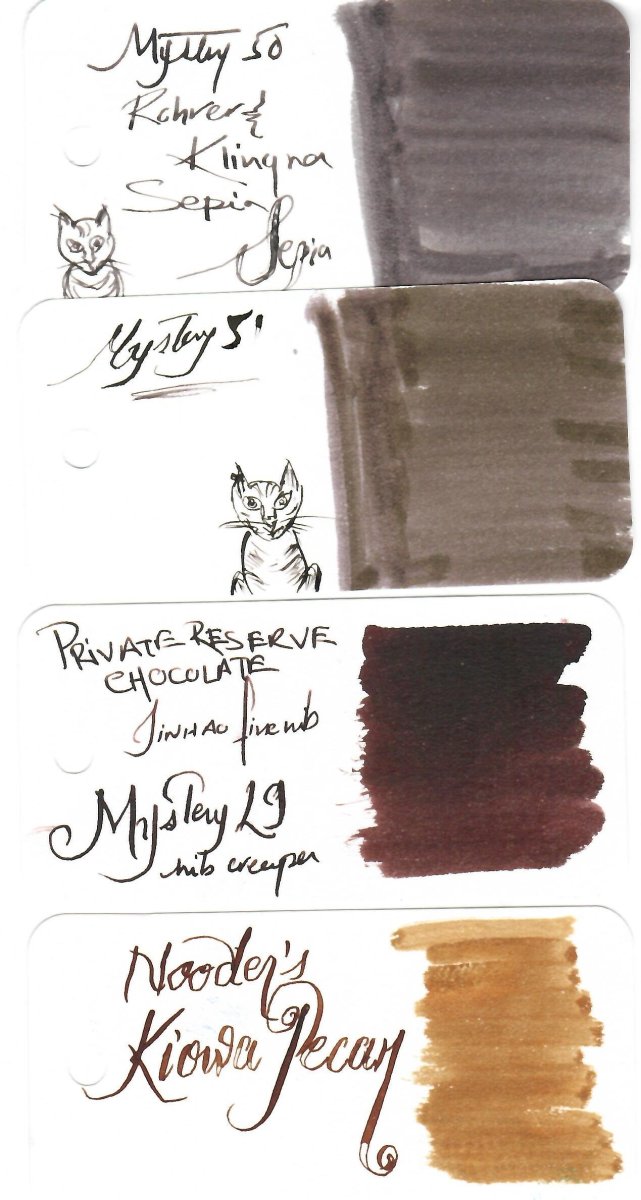 Mystery 50
Rohrer &
Klingna
Sepia
Sepia
Mystery 51
PRIVATE RESERVE
CHOCOLATE
JINHAO fine nib
Mystery 29
nib creeper
Nooder's
Kiowa Pecan